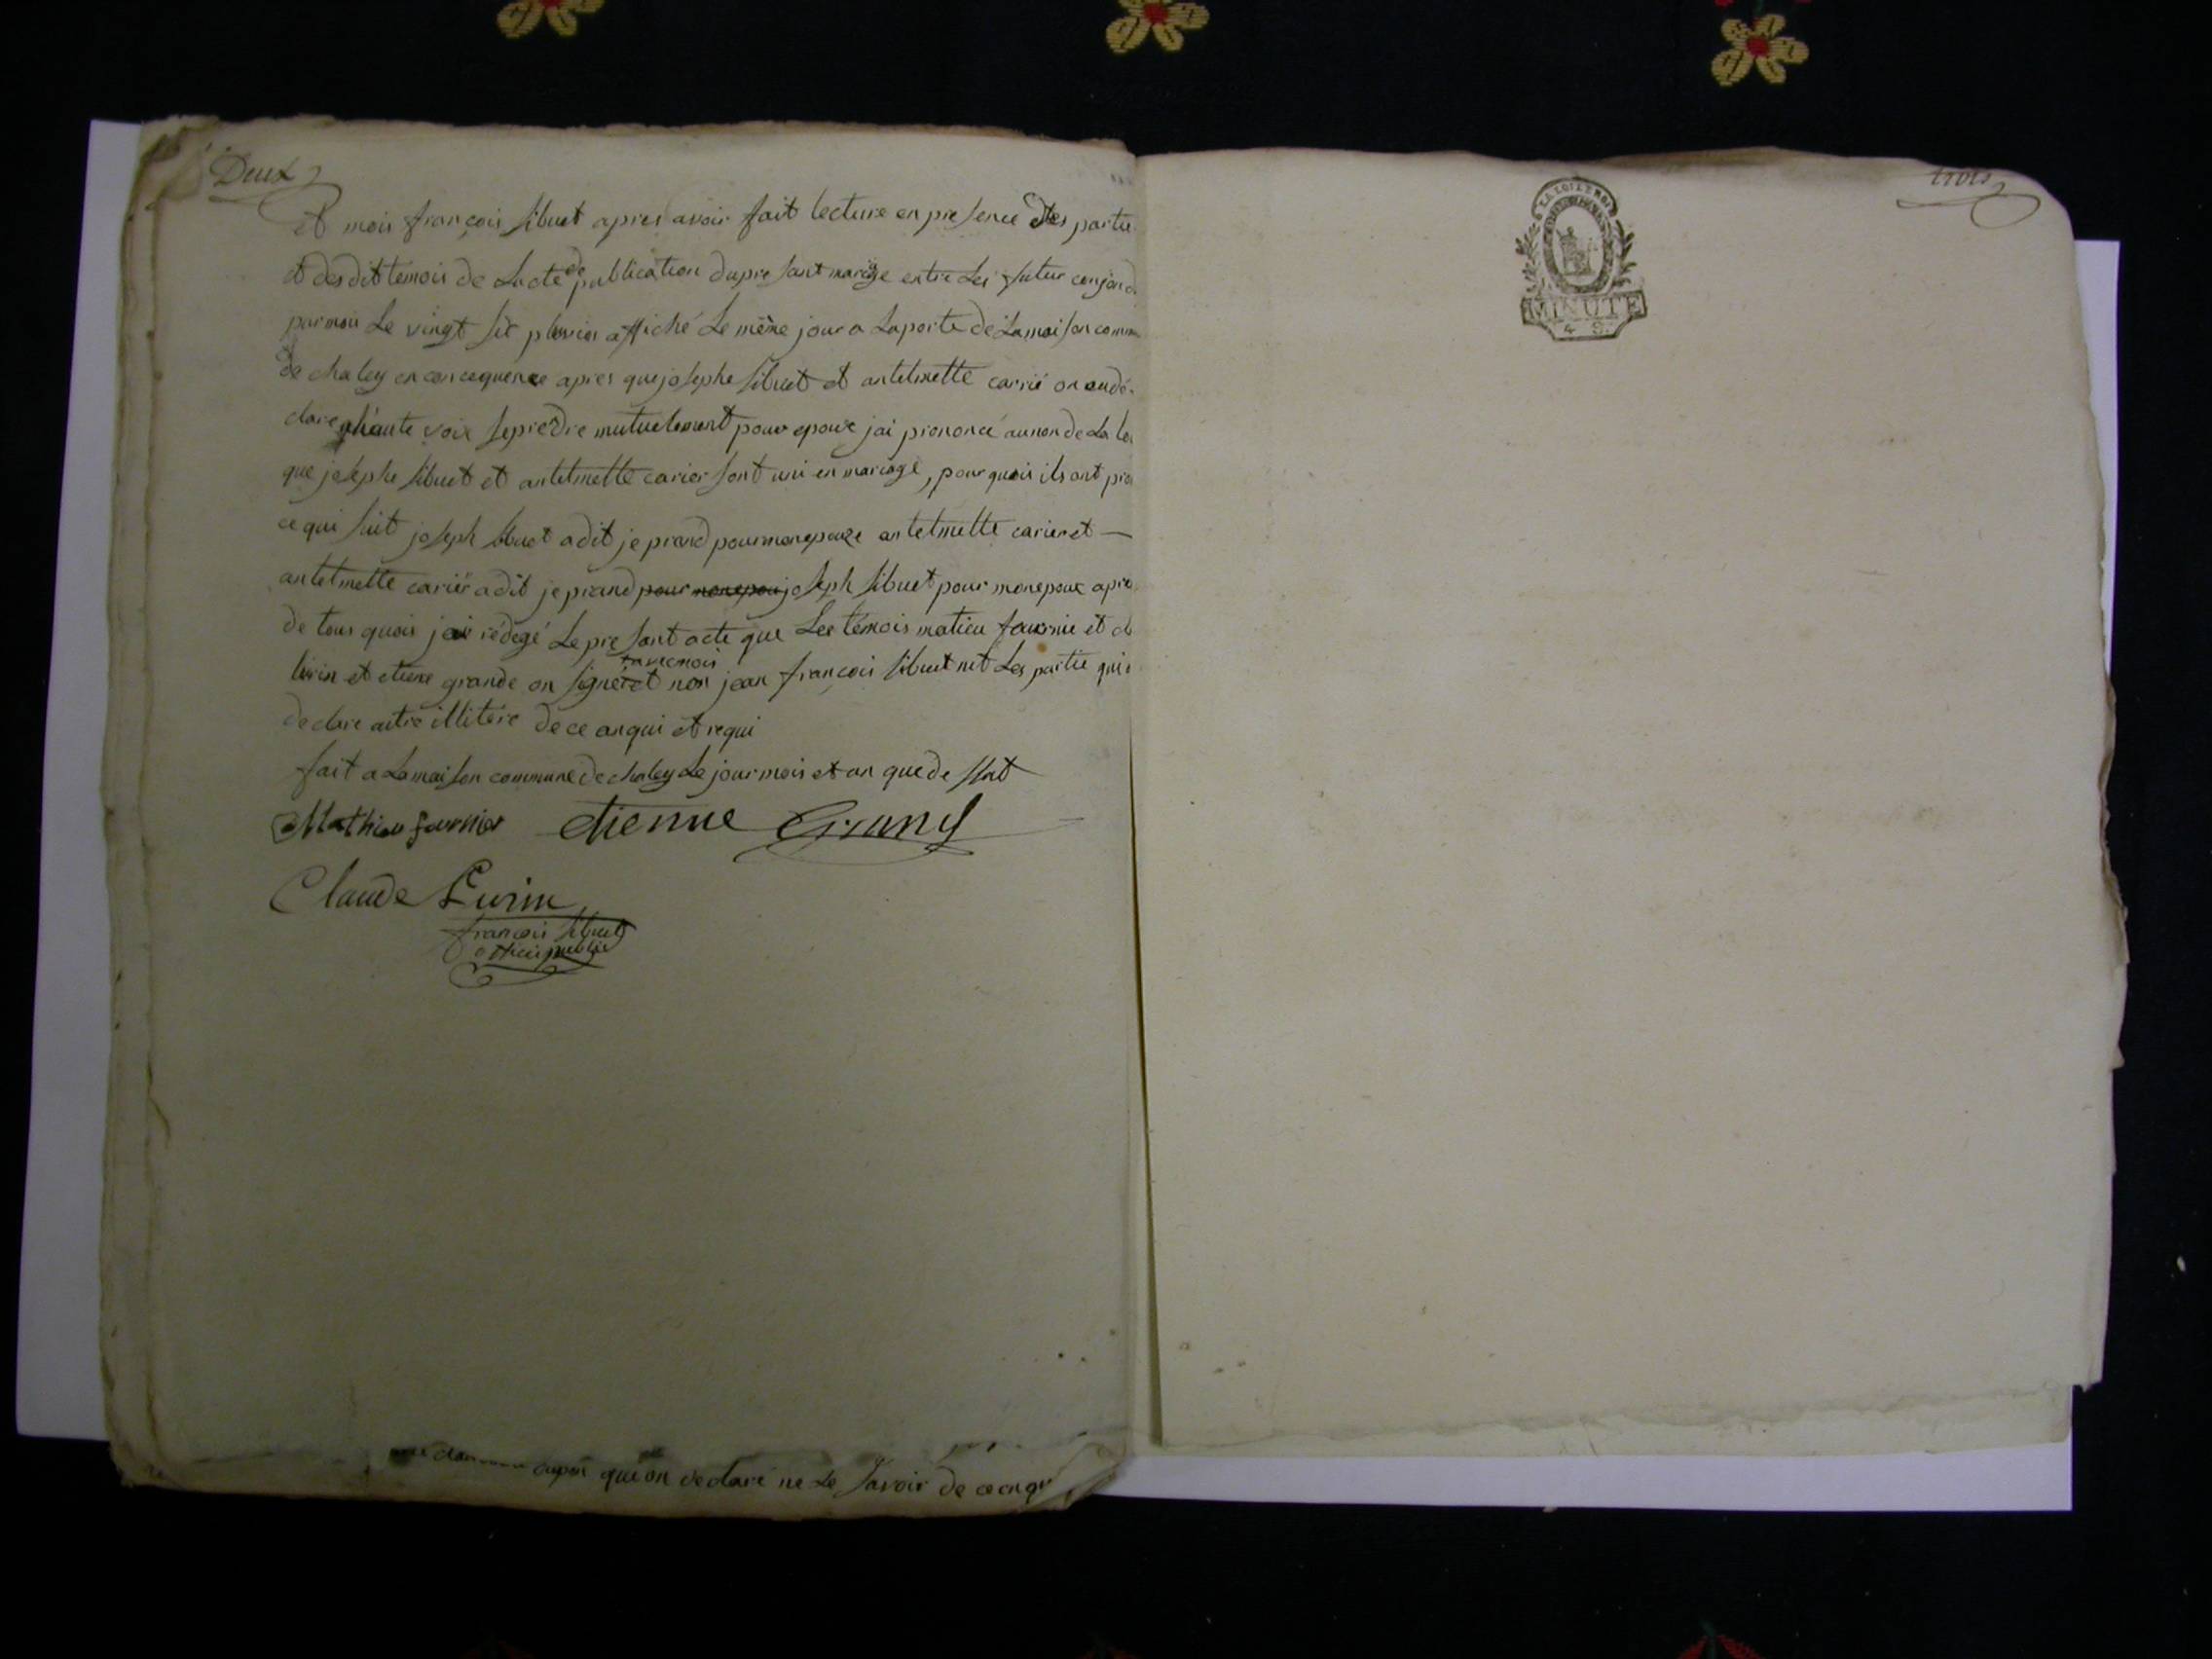 Deux
et mois françois sibuet apres avoir fait lecture en presence des partie
et desdit temois de lacte de publication dupresant mariage entre les futur conjoind
parmois le vingt sic pluvios affiché le même jour a laporte de lamaison comm
de chaley en concequence apres que josephe sibuet et antelmette carrié on audé-
clare ahaute voix sepredre mutuelement pour epoux jai prononcé aunon de la loi
que josephe sibuet et antelmette carier sont uni en mariage, pour quois ils ont pro
ce qui suit joseph sibuet adit je prand pourmonepouze antelmette carier et —
antelmette cariér adit je prand pour monepou joseph sibuet pour monepoux apre
de tous quois jai rédegé le presant acte que les témois matieu fournie et cl
avecmois
lirin et etiene grande on signé et non jean françois sibuet nit les partie qui
declare aitre illitére de ce anqui et requi
fait a lamaison commune de chaley le jour mois et an quede ssut
Mathieu fournier etienne Grand
Claude Lirin
francois sibuet
officie public
qui on declaré ne le savoir de ce
trois
LA LOI LE ROI
MINUTE
4 S.